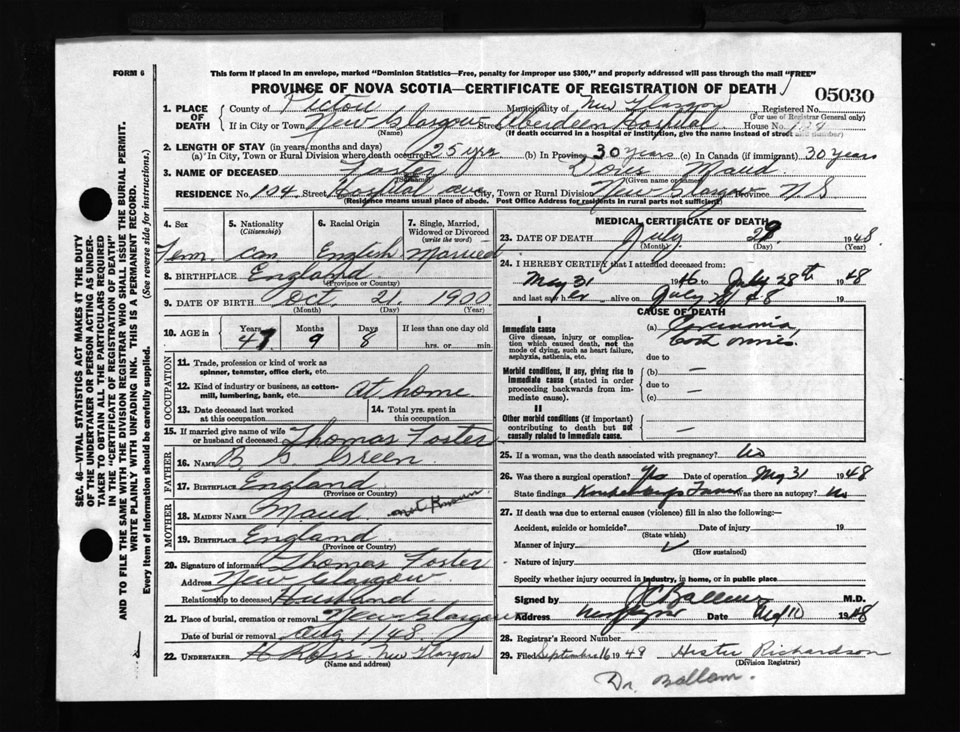 FORM 6
This form if placed in an envelope, marked "Dominion Statistics—Free, penalty for improper use $300," and properly addressed will pass through the mail "FREE"
PROVINCE OF NOVA SCOTIA—CERTIFICATE OF REGISTRATION OF DEATH
05030
1. PLACE OF DEATH
County of Pictou Municipality of New Glasgow Registered No.
(For use of Registrar General only)
If in City or Town New Glasgow Street Aberdeen Hospital House No.
(Name) (If death occurred in a hospital or institution, give the name instead of street and number)
2. LENGTH OF STAY (in years, months and days)
(a) In City, Town or Rural Division where death occurred 25 yrs (b) In Province 30 years (c) In Canada (if immigrant) 30 years
3. NAME OF DECEASED Foster Maud
(Surname) (Given name or names)
RESIDENCE No. 104 Street Hospital ave City, Town or Rural Division New Glasgow Province N S
(Residence means usual place of abode. Post Office Address for residents in rural parts not sufficient)
4. Sex Fem.
5. Nationality (Citizenship) Can
6. Racial Origin English
7. Single, Married, Widowed or Divorced (write the word) Married
8. BIRTHPLACE England
(Province or Country)
9. DATE OF BIRTH Oct. 21 1900
(Month) (Day) (Year)
10. AGE in Years 47 Months 9 Days 8 If less than one day old hrs. or min
OCCUPATION
11. Trade, profession or kind of work as spinner, teamster, office clerk, etc.
12. Kind of industry or business, as cotton-mill, lumbering, bank, etc. at home
13. Date deceased last worked at this occupation
14. Total yrs. spent in this occupation
15. If married give name of wife or husband of deceased Thomas Foster
FATHER
16. NAME B. G Green
17. BIRTHPLACE England
(Province or Country)
MOTHER
18. MAIDEN NAME Maud not Known
19. BIRTHPLACE England
(Province or Country)
20. Signature of informant Thomas Foster
Address New Glasgow
Relationship to deceased Husband
21. Place of burial, cremation or removal New Glasgow
Date of burial or removal Aug 1/48
22. UNDERTAKER H Ross New Glasgow
(Name and address)
MEDICAL CERTIFICATE OF DEATH
23. DATE OF DEATH July 29 1948
(Month) (Day) (Year)
24. I HEREBY CERTIFY that I attended deceased from:
May 31 1946 to July 28th 1948
and last saw her alive on July 28 48
CAUSE OF DEATH
I
Immediate cause
Give disease, injury or complication which caused death, not the mode of dying, such as heart failure, asphyxia, asthenia, etc.
(a)
due to
Morbid conditions, if any, giving rise to immediate cause (stated in order proceeding backwards from immediate cause).
(b) —
due to —
(c)
II
Other morbid conditions (if important) contributing to death but not causally related to immediate cause.
—
25. If a woman, was the death associated with pregnancy? No
26. Was there a surgical operation? Yes Date of operation May 31 1948
State findings Was there an autopsy? No
27. If death was due to external causes (violence) fill in also the following:—
Accident, suicide or homicide? Date of injury 19
(State which)
Manner of injury
(How sustained)
Nature of injury
Specify whether injury occurred in industry, in home, or in public place
Signed by M.D.
Address New Glasgow Date 1948
28. Registrar's Record Number
29. Filed September 16 1948 Hester Richardson
(Division Registrar)
Dr. Ballam.
SEC. 46—VITAL STATISTICS ACT MAKES IT THE DUTY OF THE UNDERTAKER OR PERSON ACTING AS UNDERTAKER TO OBTAIN ALL THE PARTICULARS REQUIRED IN THE "CERTIFICATE OF REGISTRATION OF DEATH" AND TO FILE THE SAME WITH THE DIVISION REGISTRAR WHO SHALL ISSUE THE BURIAL PERMIT.
WRITE PLAINLY WITH UNFADING INK. THIS IS A PERMANENT RECORD.
Every item of information should be carefully supplied. (See reverse side for instructions.)